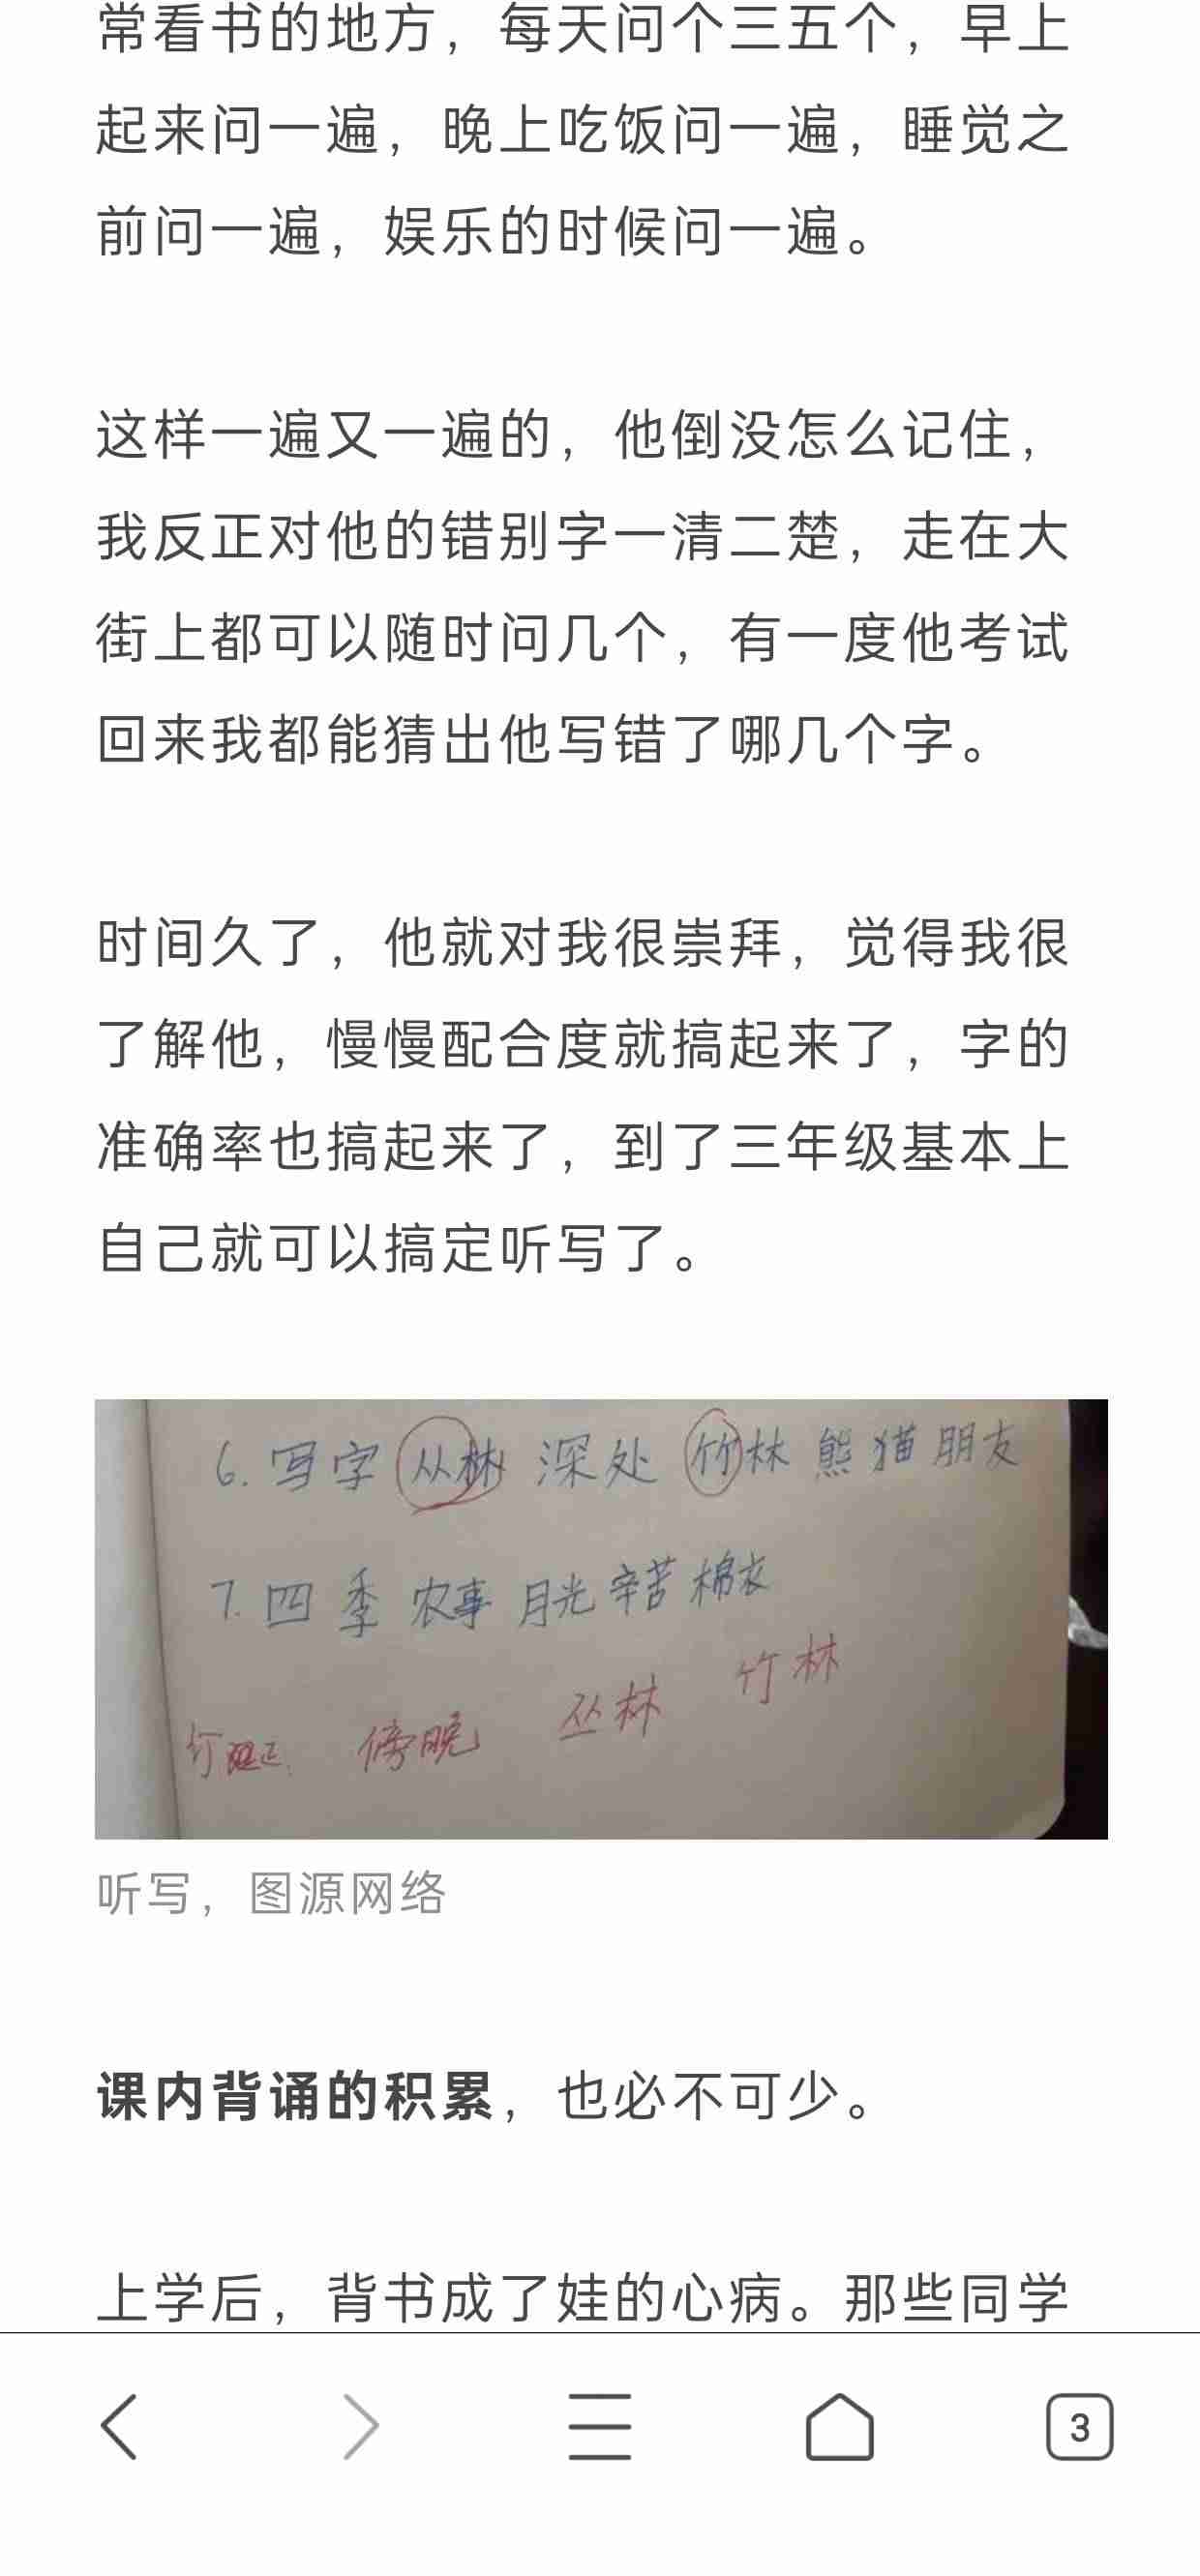 常看书的地方，每天问个三五个，早上
起来问一遍，晚上吃饭问一遍，睡觉之
前问一遍，娱乐的时候问一遍。
这样一遍又一遍的，他倒没怎么记住，
我反正对他的错别字一清二楚，走在大
街上都可以随时问几个，有一度他考试
回来我都能猜出他写错了哪几个字。
时间久了，他就对我很崇拜，觉得我很
了解他，慢慢配合度就搞起来了，字的
准确率也搞起来了，到了三年级基本上
自己就可以搞定听写了。
6. 写字 从林 深处 竹林 熊猫 朋友
7. 四季 农事 月光 辛苦 棉衣
订正. 傍晚 丛林 竹林
听写，图源网络
课内背诵的积累，也必不可少。
上学后，背书成了娃的心病。那些同学
3